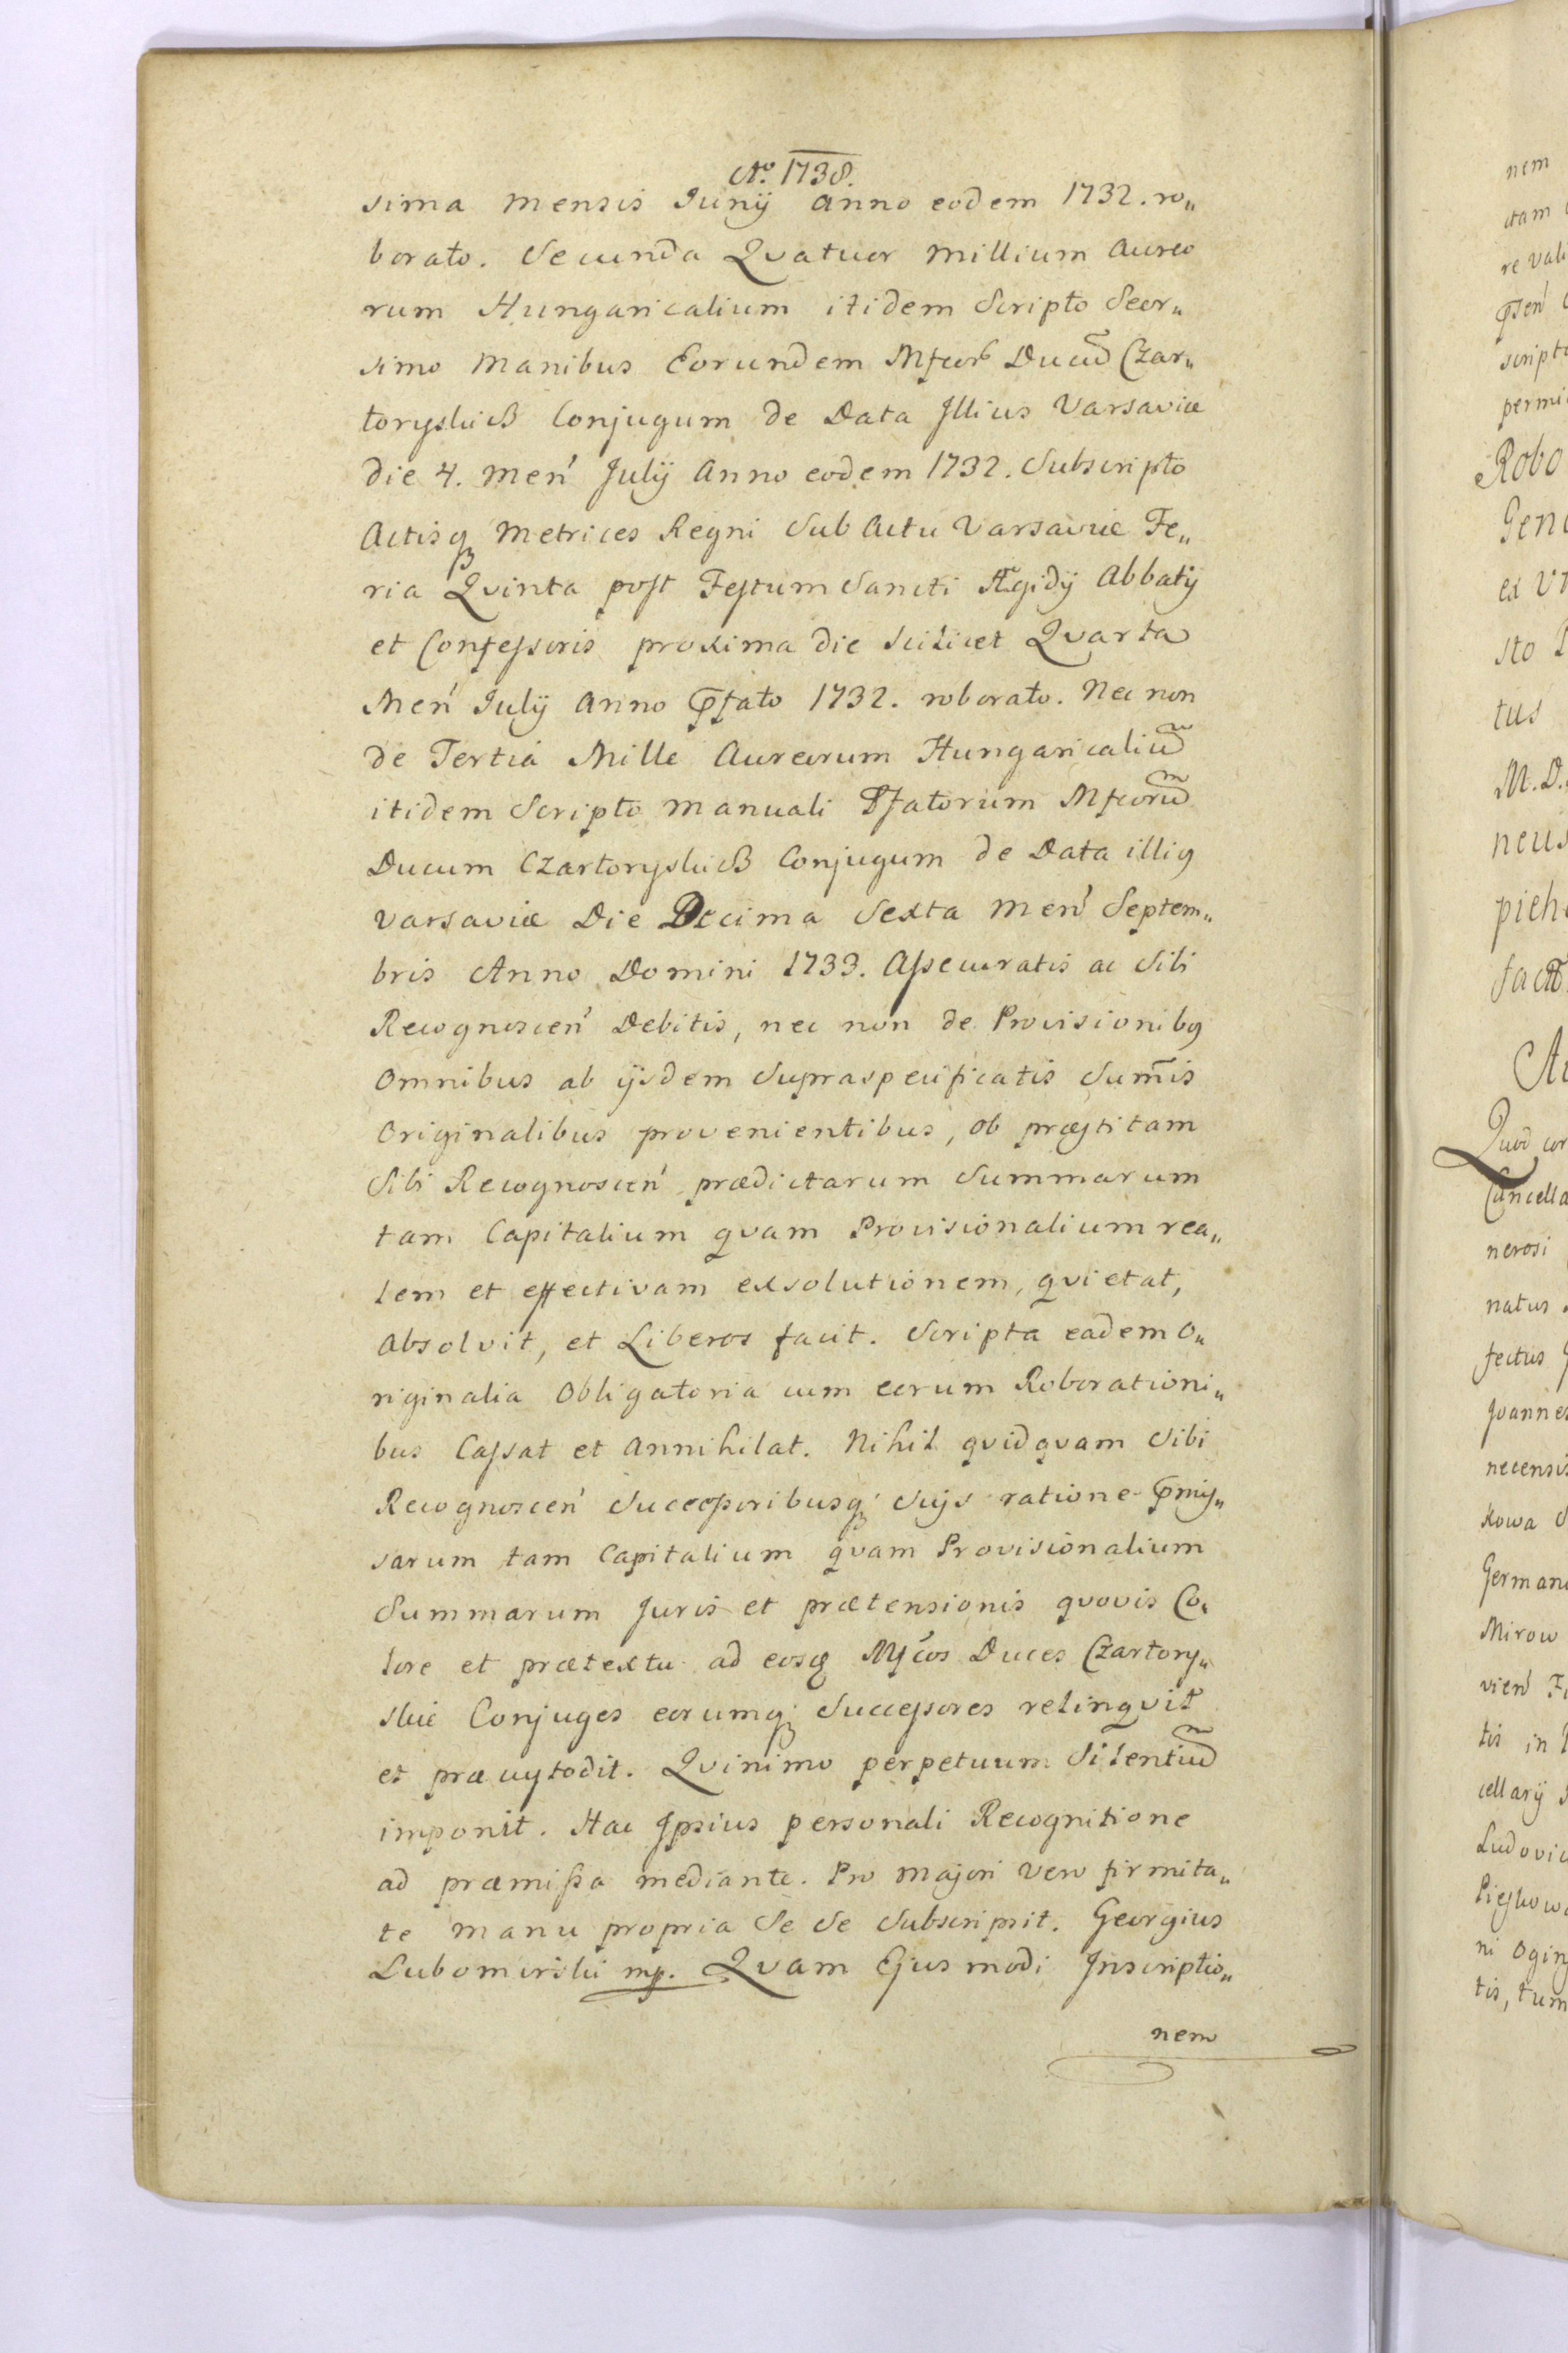 Aº 1738.
sima Mensis Junÿ anno eodem 1732. ro„
borato. Secunda Qvatuor Millium Aureo
rum Hungaricalium itidem Scripto Seor„
simo Manibus Eorundem Mfcorũ Ducũ Czar„
toryskich Conjugum de Data Illius Varsaviæ
die 4. Men' Julÿ Anno eodem 1732. Subscripto
Actisq́ꝫ Metrices Regni Sub Actu Varsaviæ Fe„
ria Qvinta post Festum Sancti Ægidÿ Abbatÿ
et Confessoris proxima die Scilicet Qvarta
Men' Julÿ Anno p̃fato 1732. roborato. Nec non
de Tertia Mille Aureorum Hungaricaliũ
itidem Scripto Manuali P̃fatorum Mfcorũ
Ducum Czartoryskich Conjugum de Data illiq
Varsaviæ Die Decima Sexta Men' Septem„
bris Anno Domini 1733. Assecuratis ac Sibi
Recognoscen' Debitis, nec non de Provisionibq
Omnibus ab ÿsdem Supraspecificatis Sum̃is
Originalibus provenientibus, ob præstitam
Sibi Recognoscen' prædictarum Summarum
tam Capitalium qvam Provisionalium rea„
lem et effectivam exsolutionem, qvietat,
Absolvit, et Liberos facit. Scripta eadem O„
riginalia Obligatoria cum eorum Roborationi„
bus Cassat et Annihilat. Nihil qvidqvam Sibi
Recognoscen' Successoribusqꝫ Suÿs ratione p̃mis„
sarum tam Capitalium qvam Provisionalium
Summarum Juris et prætensionis qvovis Co„
lore et prætextu ad eosq Mfc̃os Duces Czartory„
skie Conjuges eorumqꝫ Successores relinqvit
et præcustodit. Qvinimo perpetuum Silentiũ
imponit. Hac Ipsius personali Recognitione
ad præmissa mediante. Pro Majori vero firmita„
te Manu propria Se Se Subscripsit. Georgius
Lubomirski mp. Qvam Ejusmodi Inscriptio„
nem
nem
re vali
scripto
Robo
Gene
ex
sto
tus
M. D.
neus
pieh
Quod cor
Cancella
nerosi
natus
fectus
Joannes
necensis
kowa
Germani
Mirow
vien'
tis in
cellarÿ
Ludovic
Pieskowa
ni Ogin
tis, tum